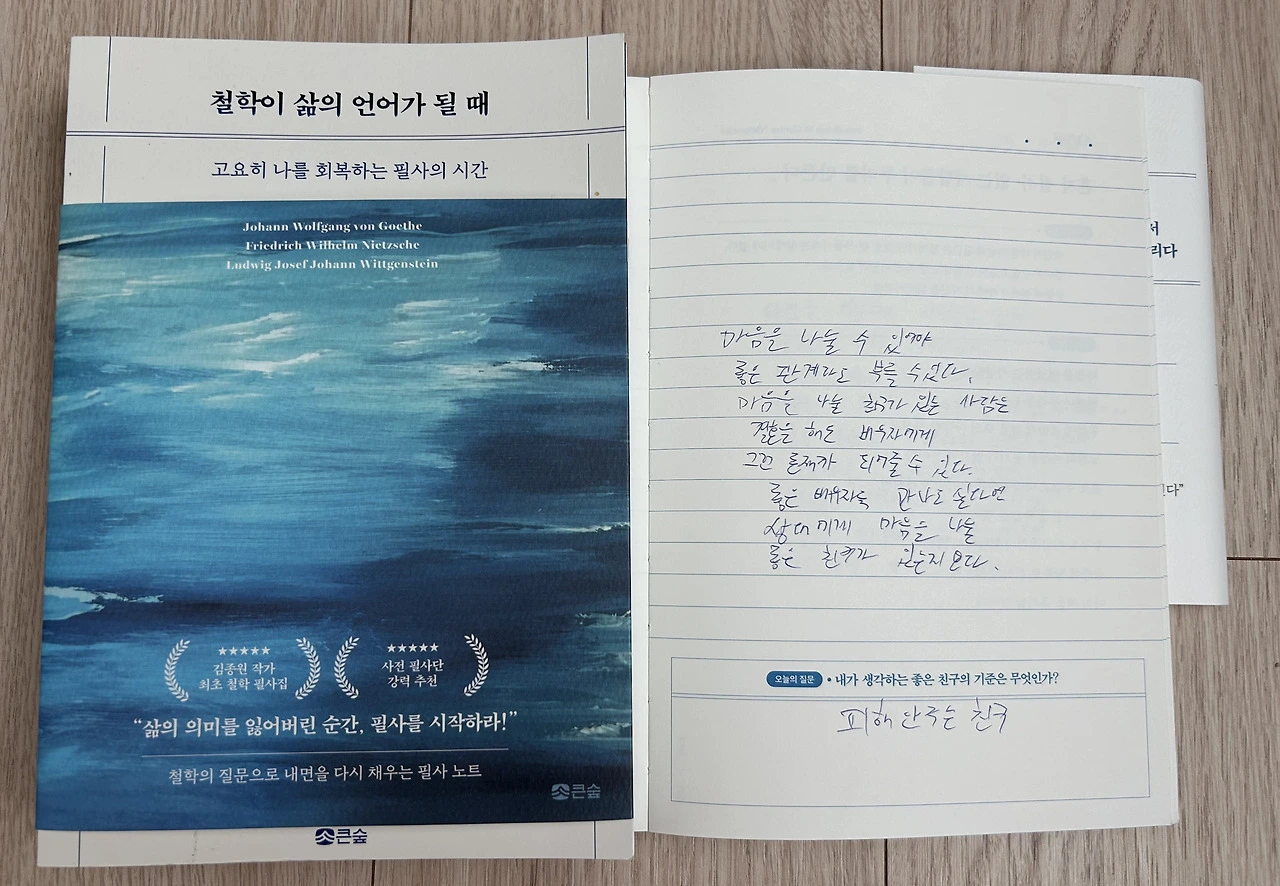 철학이 삶의 언어가 될 때
고요히 나를 회복하는 필사의 시간
Johann Wolfgang von Goethe
Friedrich Wilhelm Nietzsche
Ludwig Josef Johann Wittgenstein
★★★★★
김종원 작가
최초 철학 필사집
★★★★★
사전 필사단
강력 추천
“삶의 의미를 잃어버린 순간, 필사를 시작하라!”
철학의 질문으로 내면을 다시 채우는 필사 노트
큰숲
큰숲
마음을 나눌 수 있어야
좋은 관계라고 부를 수 있다.
마음을 나눌 친구가 있는 사람은
결혼을 해도 배우자에게
그런 존재가 되어줄 수 있다.
좋은 배우자를 만나고 싶다면
상대에게 마음을 나눌
좋은 친구가 있는지 보라.
오늘의 질문 • 내가 생각하는 좋은 친구의 기준은 무엇인가?
피해 안 주는 친구
서
리다
다”